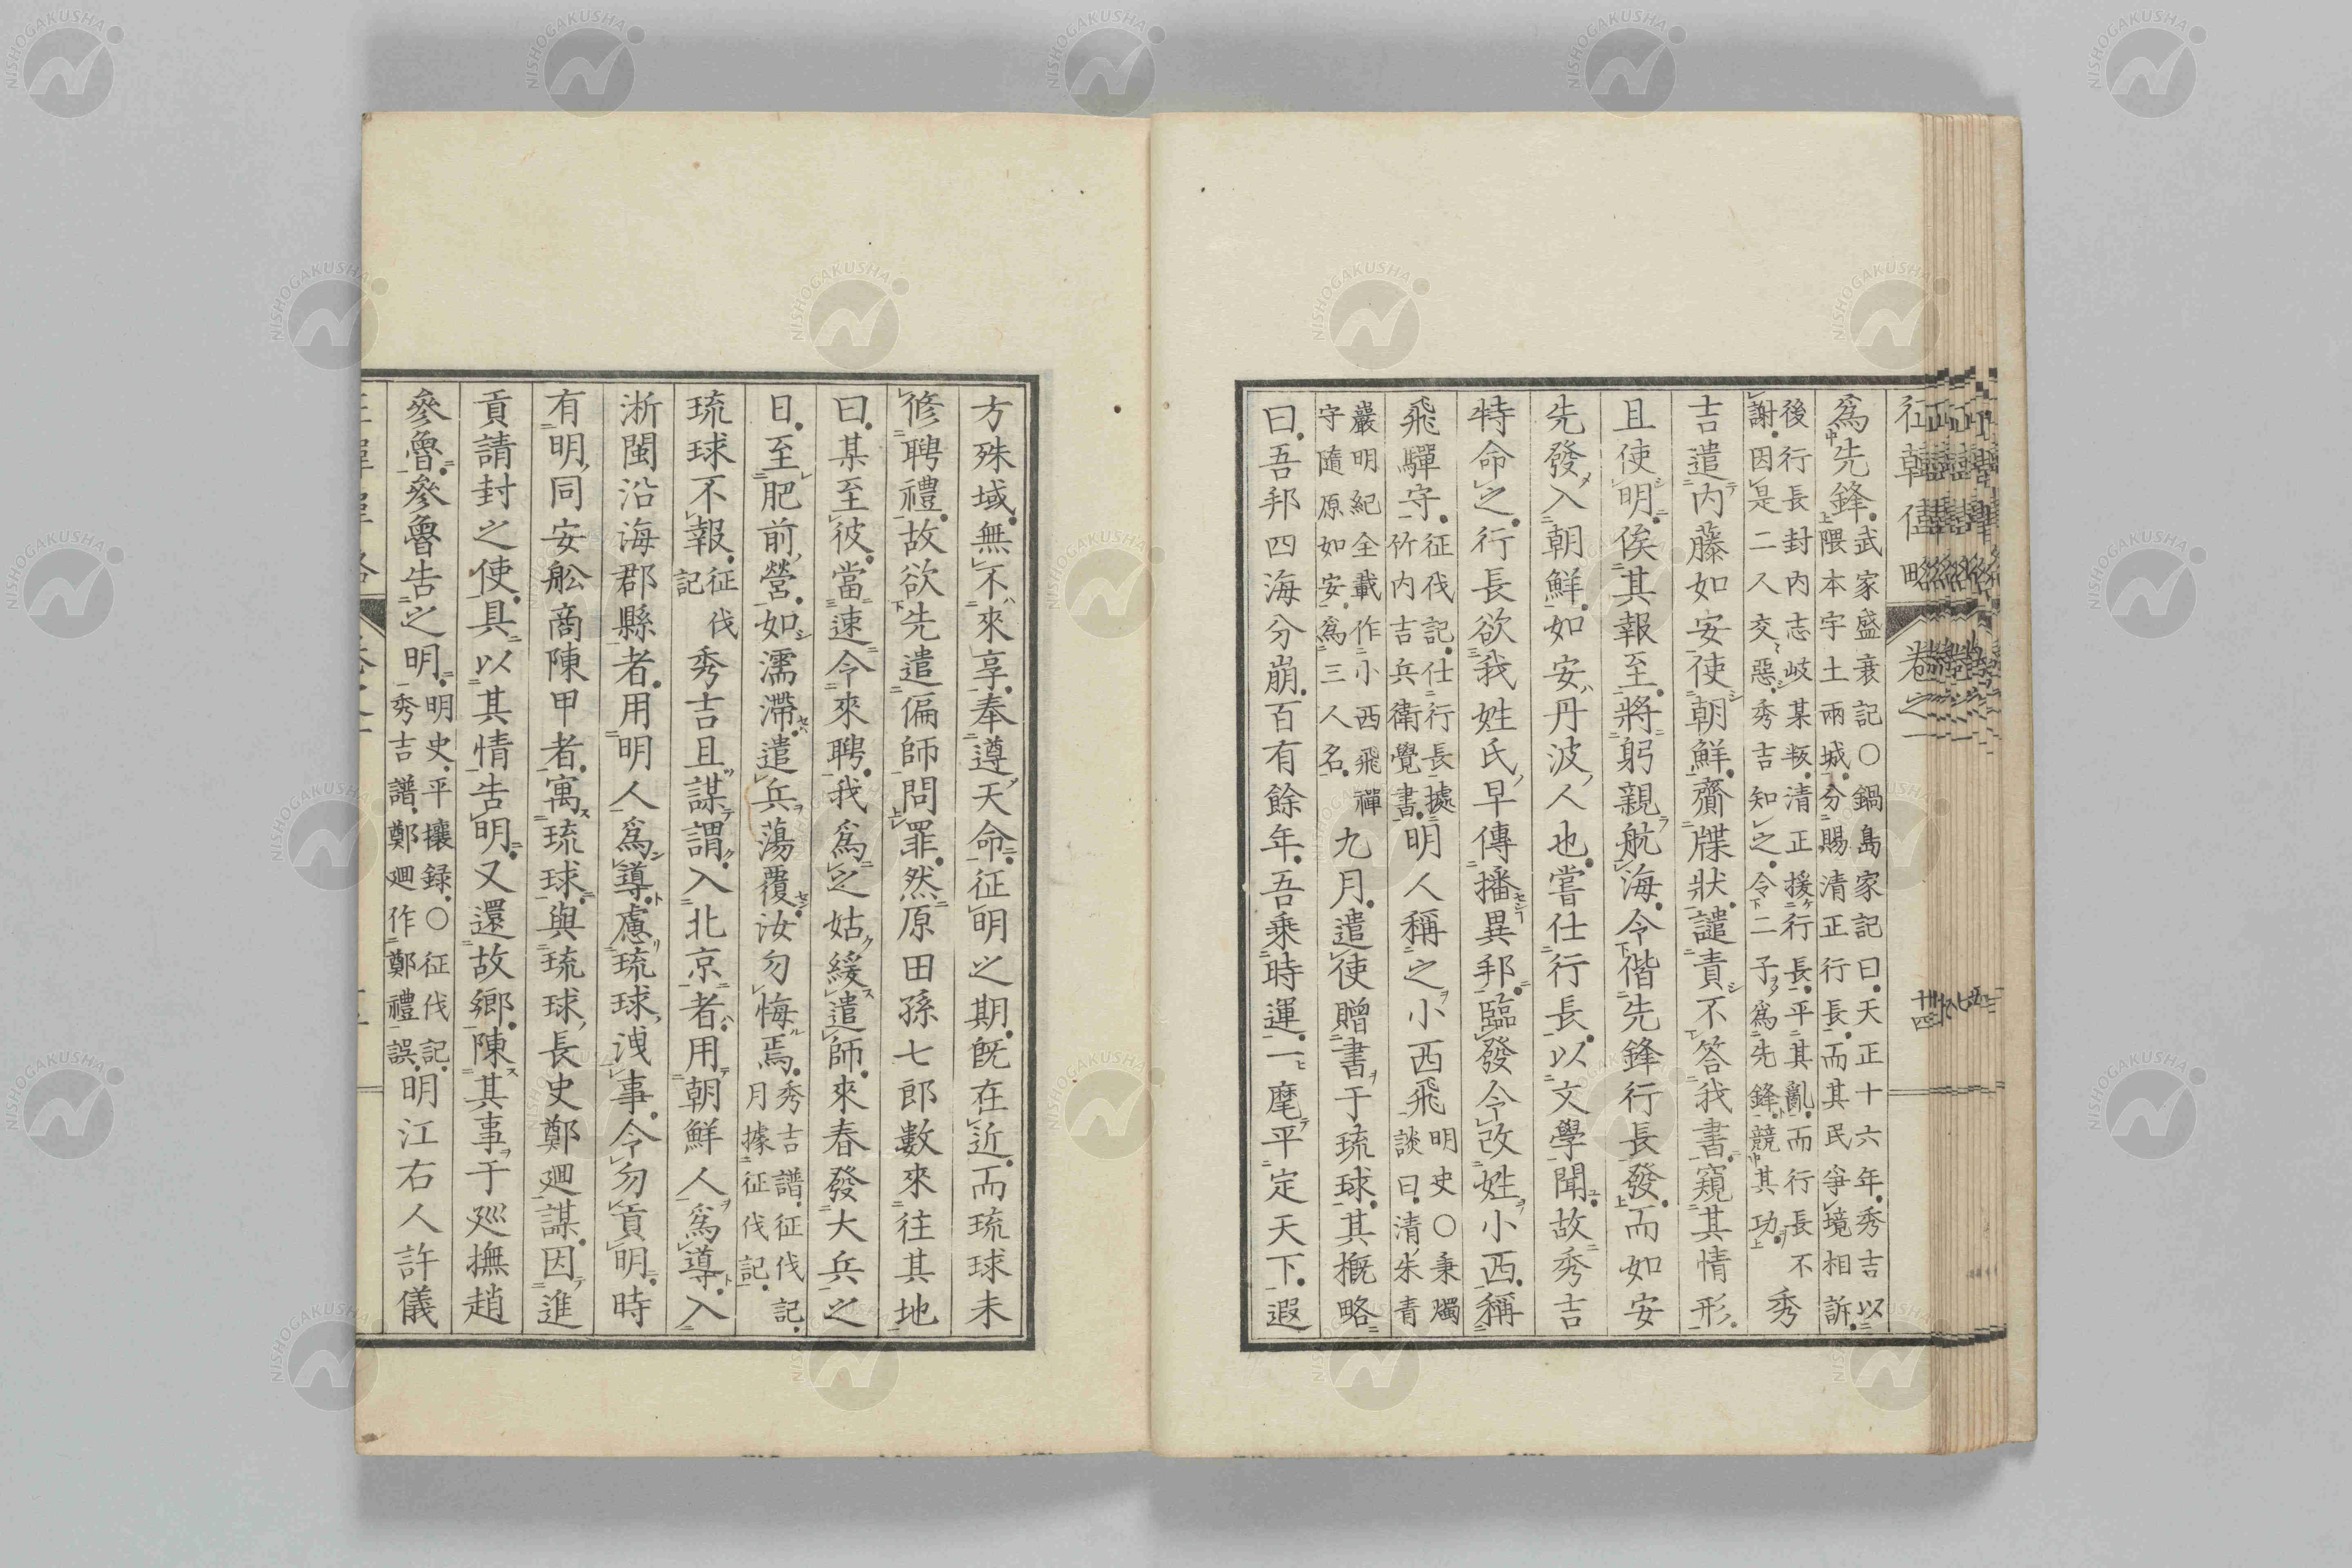 征韓偉略 卷之一 十四
爲先鋒。武家盛衰記○鍋島家記曰。天正十六年。秀吉以
隈本宇土兩城。分賜清正行長。而其民爭境相訴。
後行長封内志岐某叛。清正援行長。平其亂。而行長不
謝。因是二人交惡。秀吉知之。令二子爲先鋒。競其功。秀
吉遣内藤如安使朝鮮。齎牒狀。譴責不答我書。窺其情形。
且使明。俟其報至。將躬親航海。令偕先鋒行長發。而如安
先發入朝鮮。如安丹波人也。嘗仕行長。以文學聞。故秀吉
特命之。行長欲我姓氏早傳播異邦。臨發令改姓小西。稱
飛驒守。征伐記。仕行長。據
竹内吉兵衛覺書。明人稱之小西飛。明史○秉燭
談曰。清朱青
巖明紀全載作小西飛禪
守隨原如安。爲三人名。九月。遣使贈書于琉球。其概略
曰。吾邦四海分崩。百有餘年。吾乘時運。一麾平定天下。遐
方殊域。無不來享。奉遵天命。征明之期。既在近。而琉球未
修聘禮。故欲先遣偏師問罪。然原田孫七郎數來往其地
曰。某至彼。當速令來聘。我爲之姑緩遣師。來春發大兵之
日。至肥前營。如濡滯。遣兵蕩覆。汝勿悔焉。秀吉譜。征伐記。
月據征伐記。
琉球不報。征伐
記 秀吉且謀謂。入北京者。用朝鮮人爲導。入
浙閩沿海郡縣者。用明人爲導。慮琉球洩事。令勿貢明。時
有明同安船商陳甲者。寓琉球。與琉球長史鄭廻謀。因進
貢請封之使。具以其情告明。又還故鄉。陳其事于巡撫趙
參魯。參魯告之明。明史。平攘録。○征伐記。
秀吉譜。鄭廻作鄭禮誤。明江右人許儀